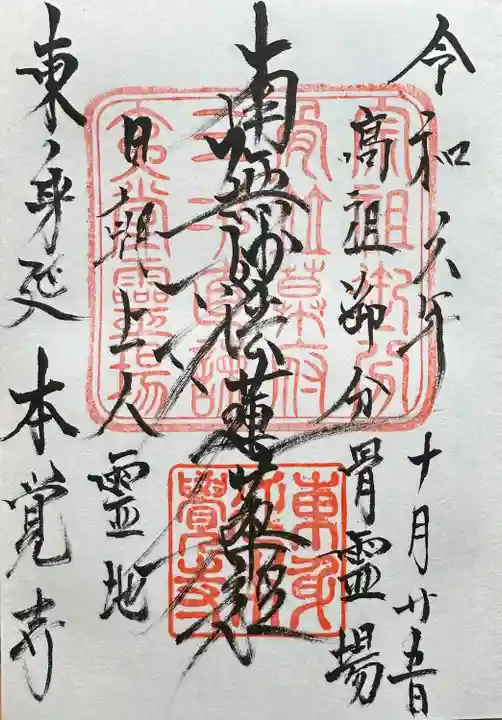 令和六年 十月廿五日
高祖御分骨霊場
南無妙法蓮華経
日朝上人霊地
東身延 本覚寺